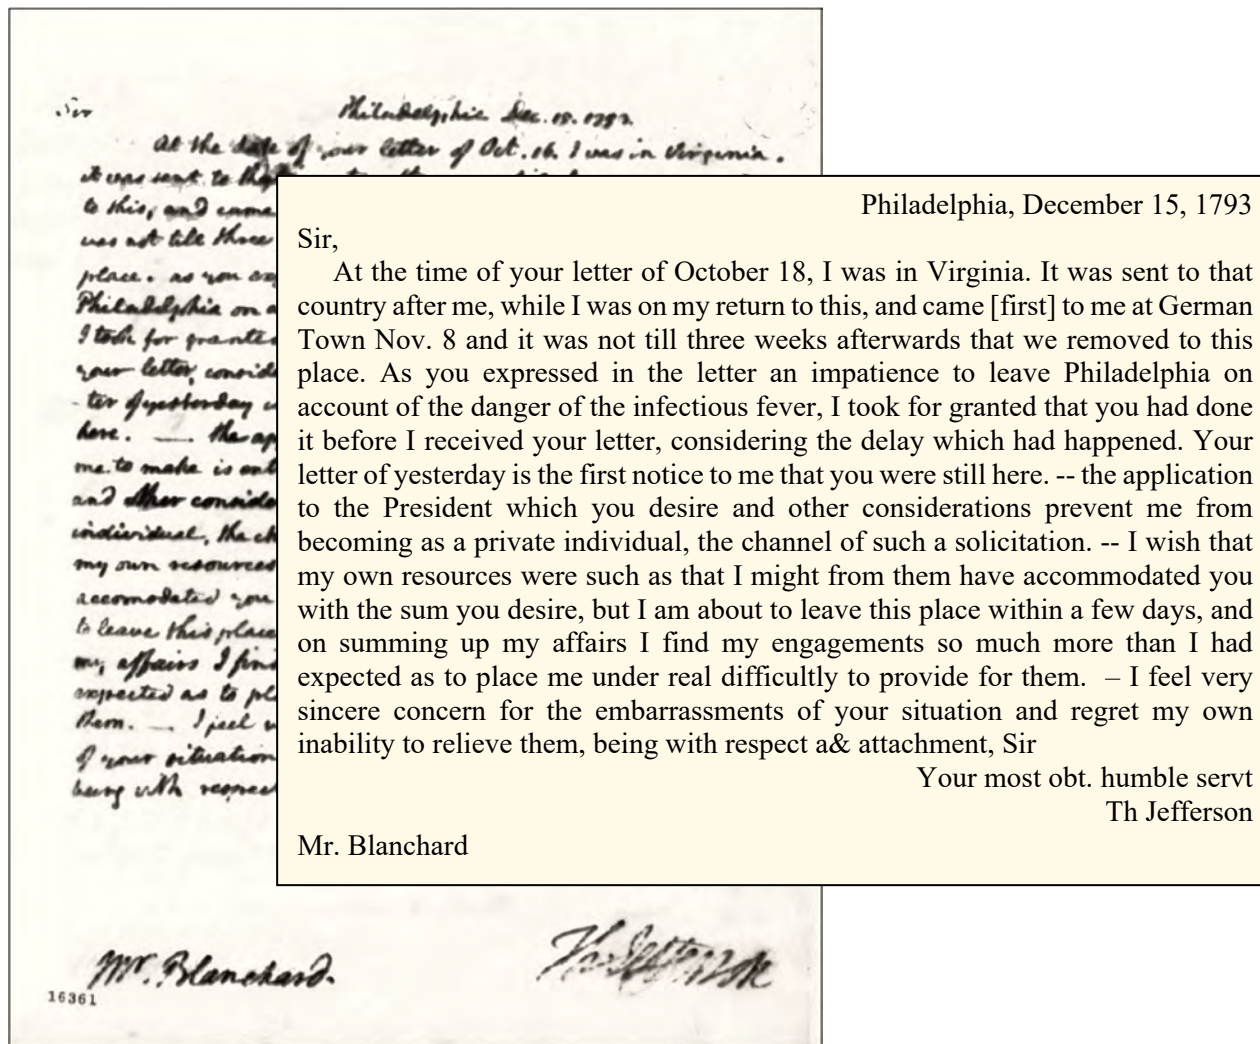 Sir Philadelphia Dec.
At the date of your letter of Oct. I was in Virginia.
it was sent to
to this, and came
was not till three
place. as you
Philadelphia on
I took for granted
your letter,
-ter of yesterday
here. — the
me to make is
and other
individual, the
my own resources
accomodated you
to leave this place
my affairs I find
expected as to
them. — I feel
of your situation
being with respect
Mr. Blanchard.
Th Jefferson
16361
Philadelphia, December 15, 1793
Sir,
At the time of your letter of October 18, I was in Virginia. It was sent to that
country after me, while I was on my return to this, and came [first] to me at German
Town Nov. 8 and it was not till three weeks afterwards that we removed to this
place. As you expressed in the letter an impatience to leave Philadelphia on
account of the danger of the infectious fever, I took for granted that you had done
it before I received your letter, considering the delay which had happened. Your
letter of yesterday is the first notice to me that you were still here. -- the application
to the President which you desire and other considerations prevent me from
becoming as a private individual, the channel of such a solicitation. -- I wish that
my own resources were such as that I might from them have accommodated you
with the sum you desire, but I am about to leave this place within a few days, and
on summing up my affairs I find my engagements so much more than I had
expected as to place me under real difficultly to provide for them. – I feel very
sincere concern for the embarrassments of your situation and regret my own
inability to relieve them, being with respect a& attachment, Sir
Your most obt. humble servt
Th Jefferson
Mr. Blanchard